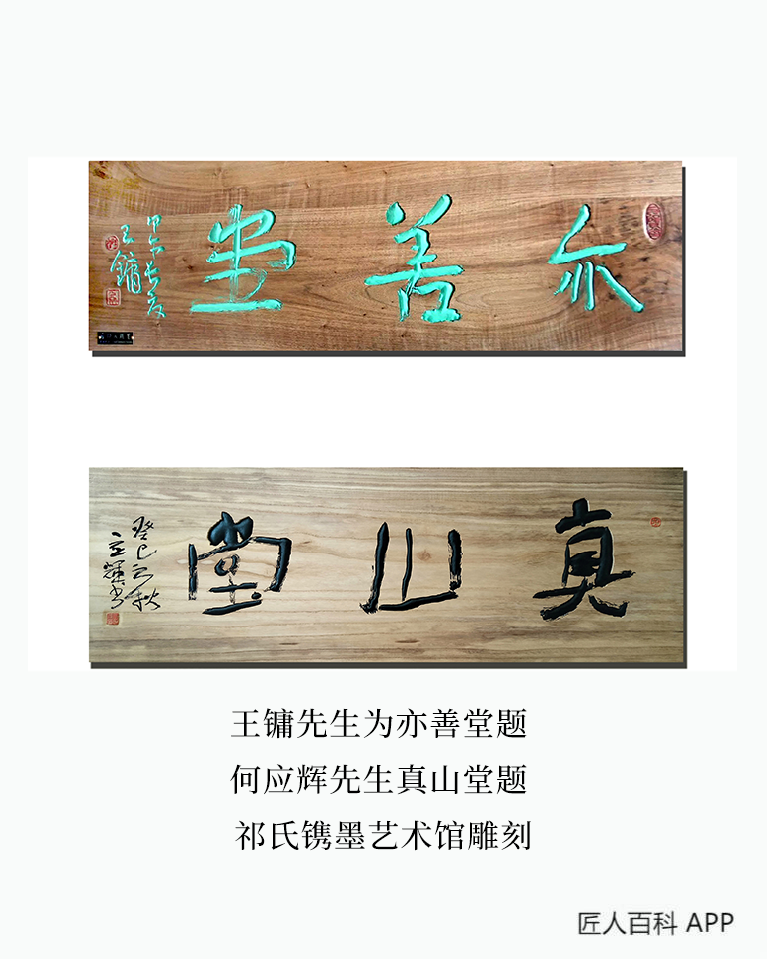 亦善堂
甲午长夏
王镛
真山堂
癸巳之秋
应辉书
王镛先生为亦善堂题
何应辉先生真山堂题
祁氏镌墨艺术馆雕刻
匠人百科 APP